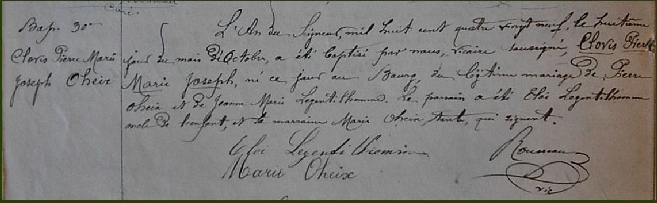 Bap. 30e
Clovis Pierre Marie
Joseph Oheix
L'An du Seigneur, mil huit cent quatre vingt neuf, le huitième
jour du mois d'Octobre, a été baptisé par nous, vicaire soussigné, Clovis Pierre
Marie Joseph, né ce jour au Bourg, du légitime mariage de Pierre
Oheix et de Jeanne Marie Legentilhomme. Le parrain a été Eloi Legentilhomme
oncle de l'enfant, et la marraine Marie Oheix, tante, qui signent.
Eloi Legentilhomme
Marie Oheix
vic